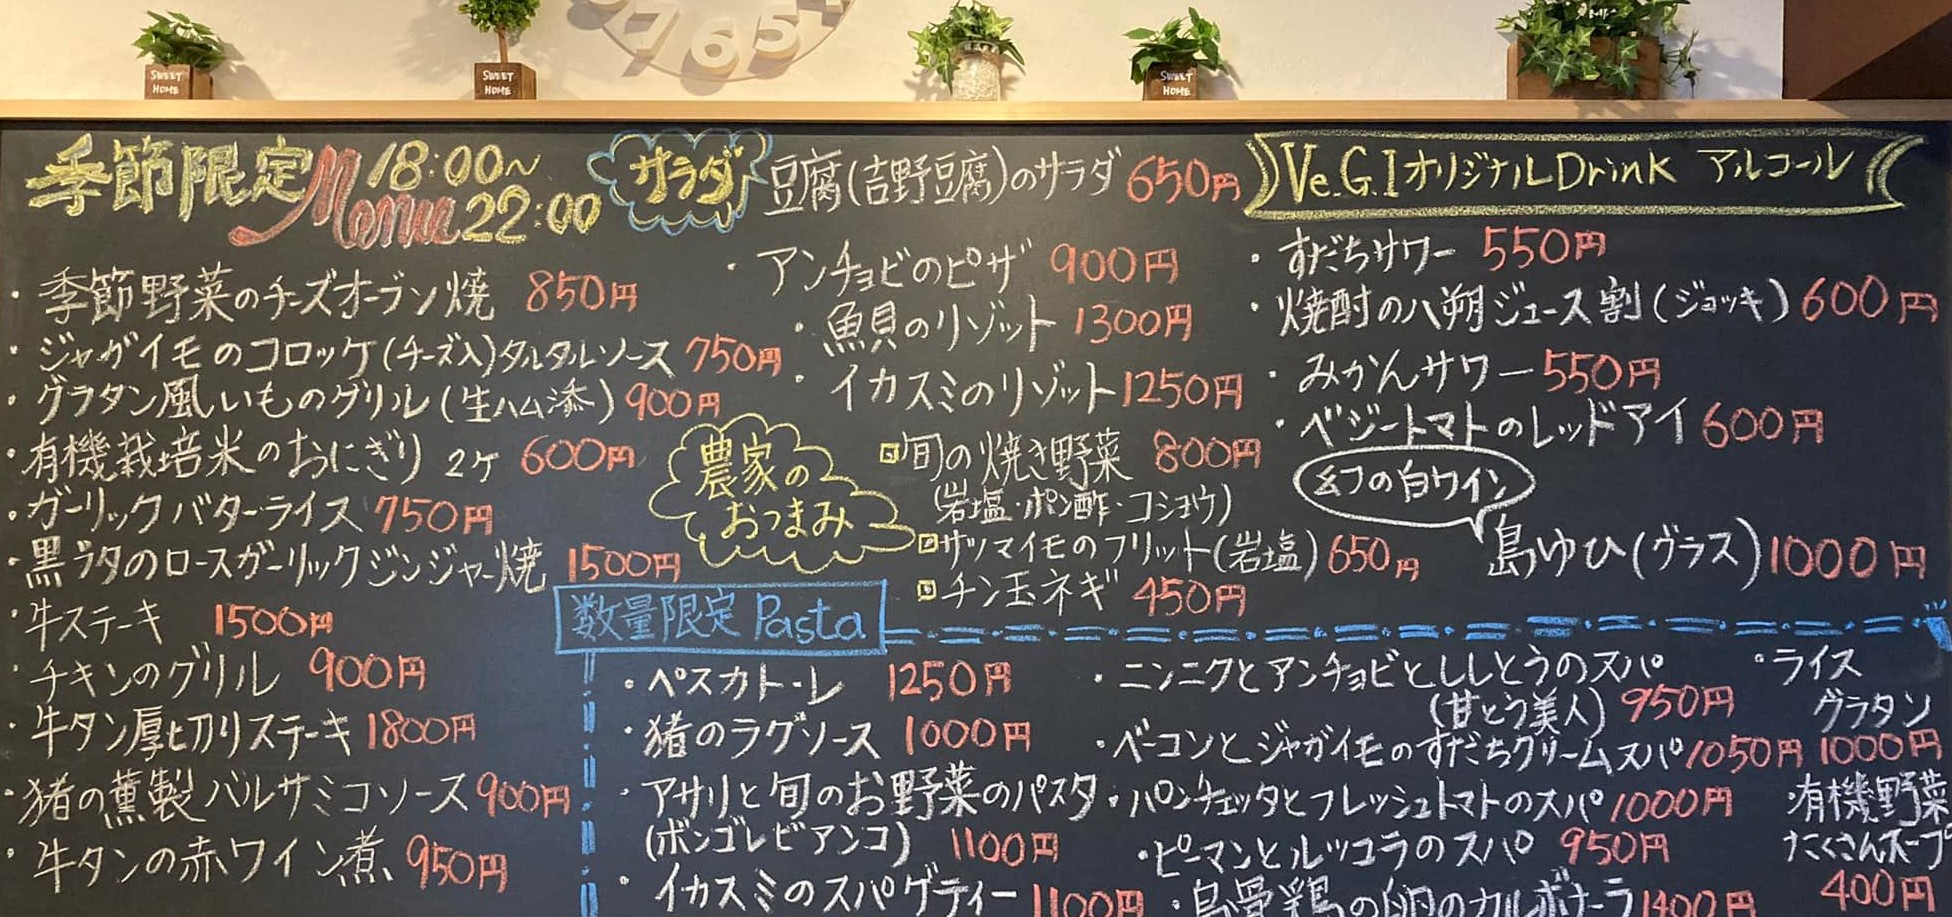 7 6 5 4
SWEET
HOME
SWEET
HOME
SWEET
HOME
季節限定Menu 18:00～
22:00
・季節野菜のチーズオーブン焼 850円
・ジャガイモのコロッケ(チーズ入)タルタルソース 750円
・グラタン風いものグリル(生ハム添) 900円
・有機栽培米のおにぎり 2ケ 600円
・ガーリックバターライス 750円
・黒ブタのロースガーリックジンジャー焼 1500円
・牛ステーキ 1500円
・チキンのグリル 900円
・牛タン厚切りステーキ 1800円
・猪の薫製バルサミコソース 900円
・牛タンの赤ワイン煮 950円
サラダ 豆腐(吉野豆腐)のサラダ 650円
・アンチョビのピザ 900円
・魚貝のリゾット 1300円
・イカスミのリゾット 1250円
農家の
おつまみ
旬の焼き野菜 800円
(岩塩・ポン酢・コショウ)
サツマイモのフリット(岩塩) 650円
チン玉ネギ 450円
Ve.G.IオリジナルDrink アルコール
・すだちサワー 550円
・焼酎の八朔ジュース割(ジョッキ) 600円
・みかんサワー 550円
・ベジートマトのレッドアイ 600円
幻の白ワイン
島ゆひ(グラス) 1000円
数量限定 Pasta
・ペスカトーレ 1250円
・猪のラグソース 1000円
・アサリと旬のお野菜のパスタ
(ボンゴレビアンコ) 1100円
・イカスミのスパゲティー 1100円
・ニンニクとアンチョビとししとうのスパ
(甘とう美人) 950円
・ベーコンとジャガイモのすだちクリームスパ 1050円
・パンチェッタとフレッシュトマトのスパ 1000円
・ピーマンとルッコラのスパ 950円
・烏骨鶏の卵のカルボナーラ 1400円
・ライス
グラタン
1000円
・有機野菜
たくさんスープ
400円